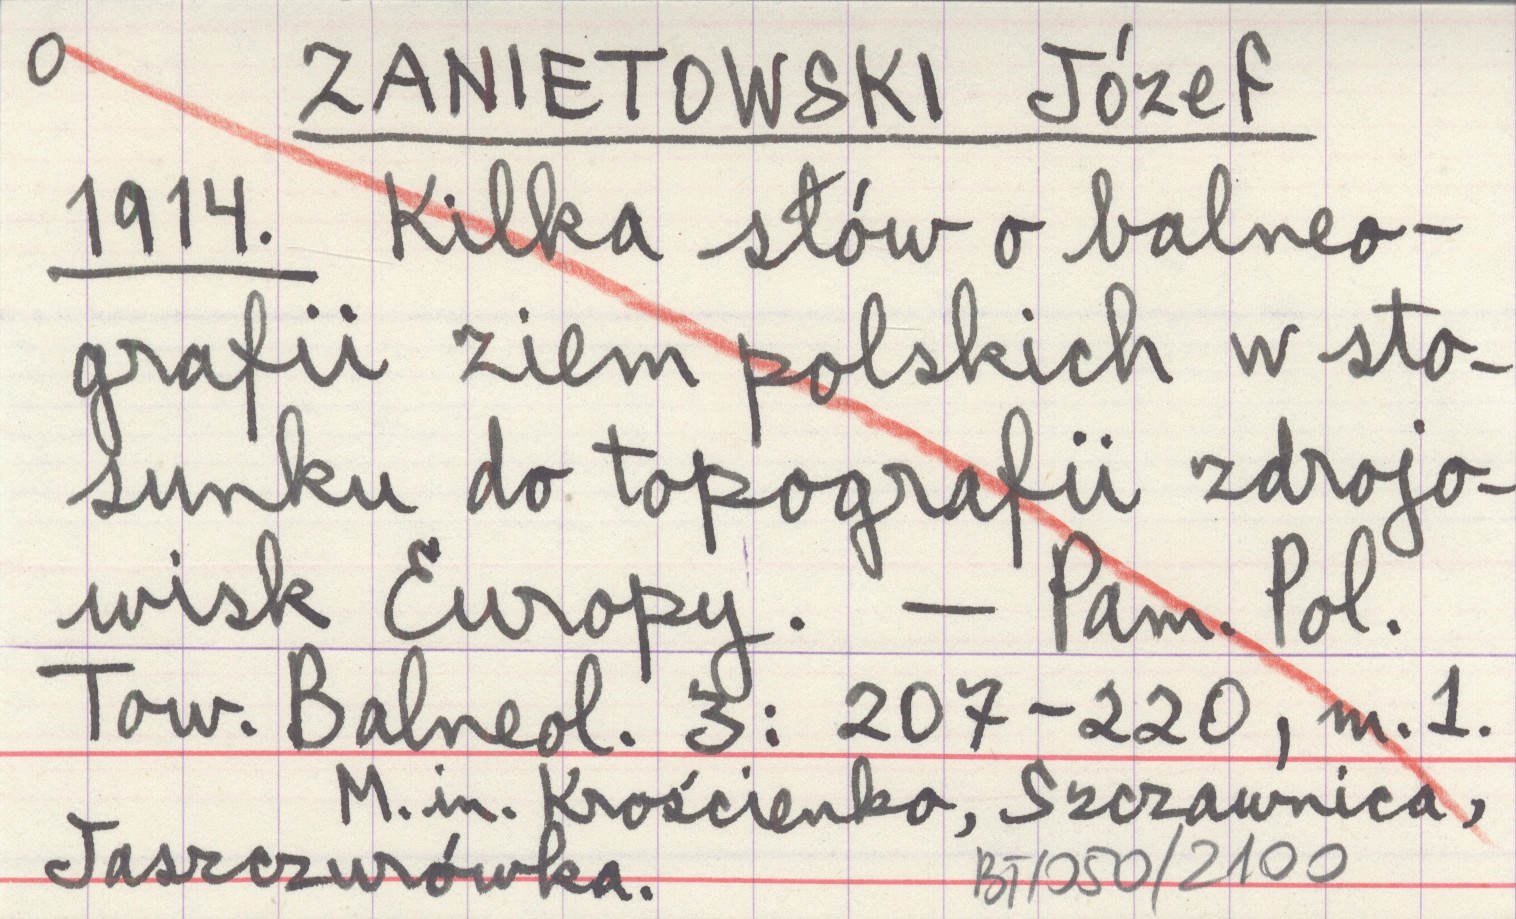 O ZANIETOWSKI Józef
1914. Kilka słów o balneo-
grafii ziem polskich w sto-
sunku do topografii zdrojo-
wisk Europy. — Pam. Pol.
Tow. Balneol. 3: 207-220, m. 1.
M. in. Krościenko, Szczawnica,
Jaszczurówka.
BT/050/2100